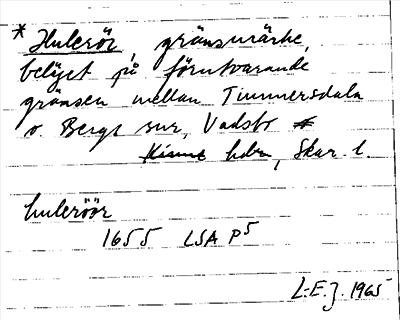 * Hulerör, gränsmärke,
beläget på förutvarande
gränsen mellan Timmersdala
o. Bergs snr, Vadsbo
Kinne hdr, Skar. l.
huleröör
1655 LSA P5
L.E.J. 1965